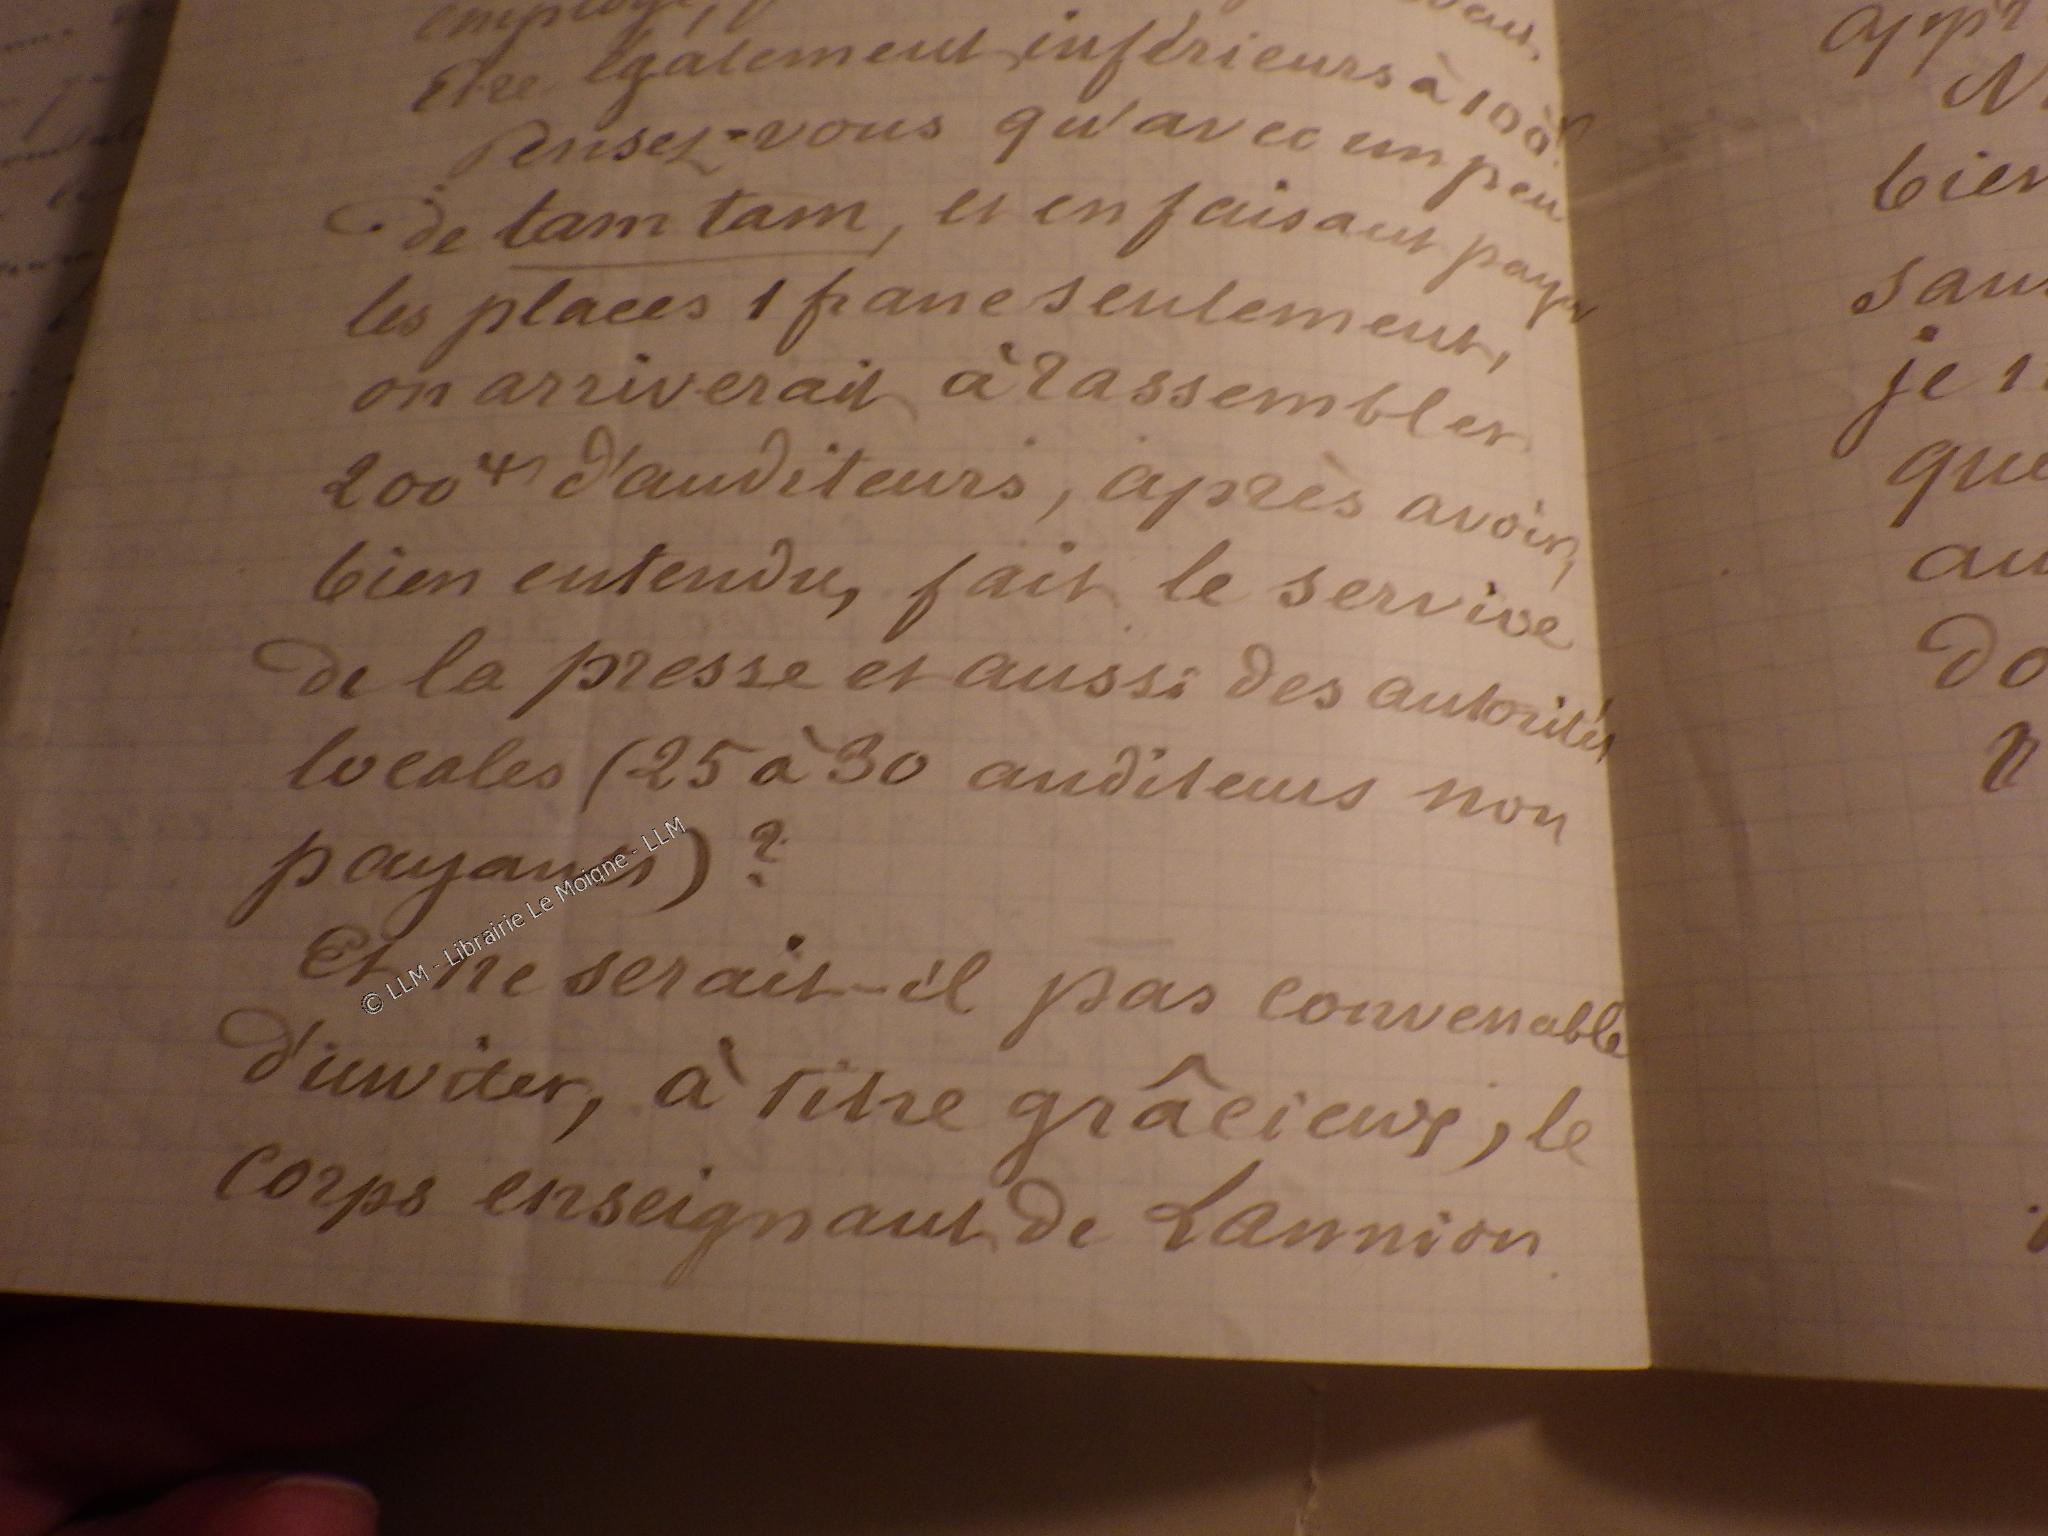 employé,
être également inférieurs à 100 f.
Pensez-vous qu'avec un peu
de tam tam, et en faisant payer
les places 1 franc seulement,
on arriverait à rassembler
200 d'auditeurs, après avoir,
bien entendu, fait le service
de la presse et aussi des autorités
locales (25 à 30 auditeurs non
payants) ?
Et ne serait-il pas convenable
d'inviter, à titre grâcieux, le
corps enseignant de Lannion
© LLM - Librairie Le Moigne - LLM
bien
je